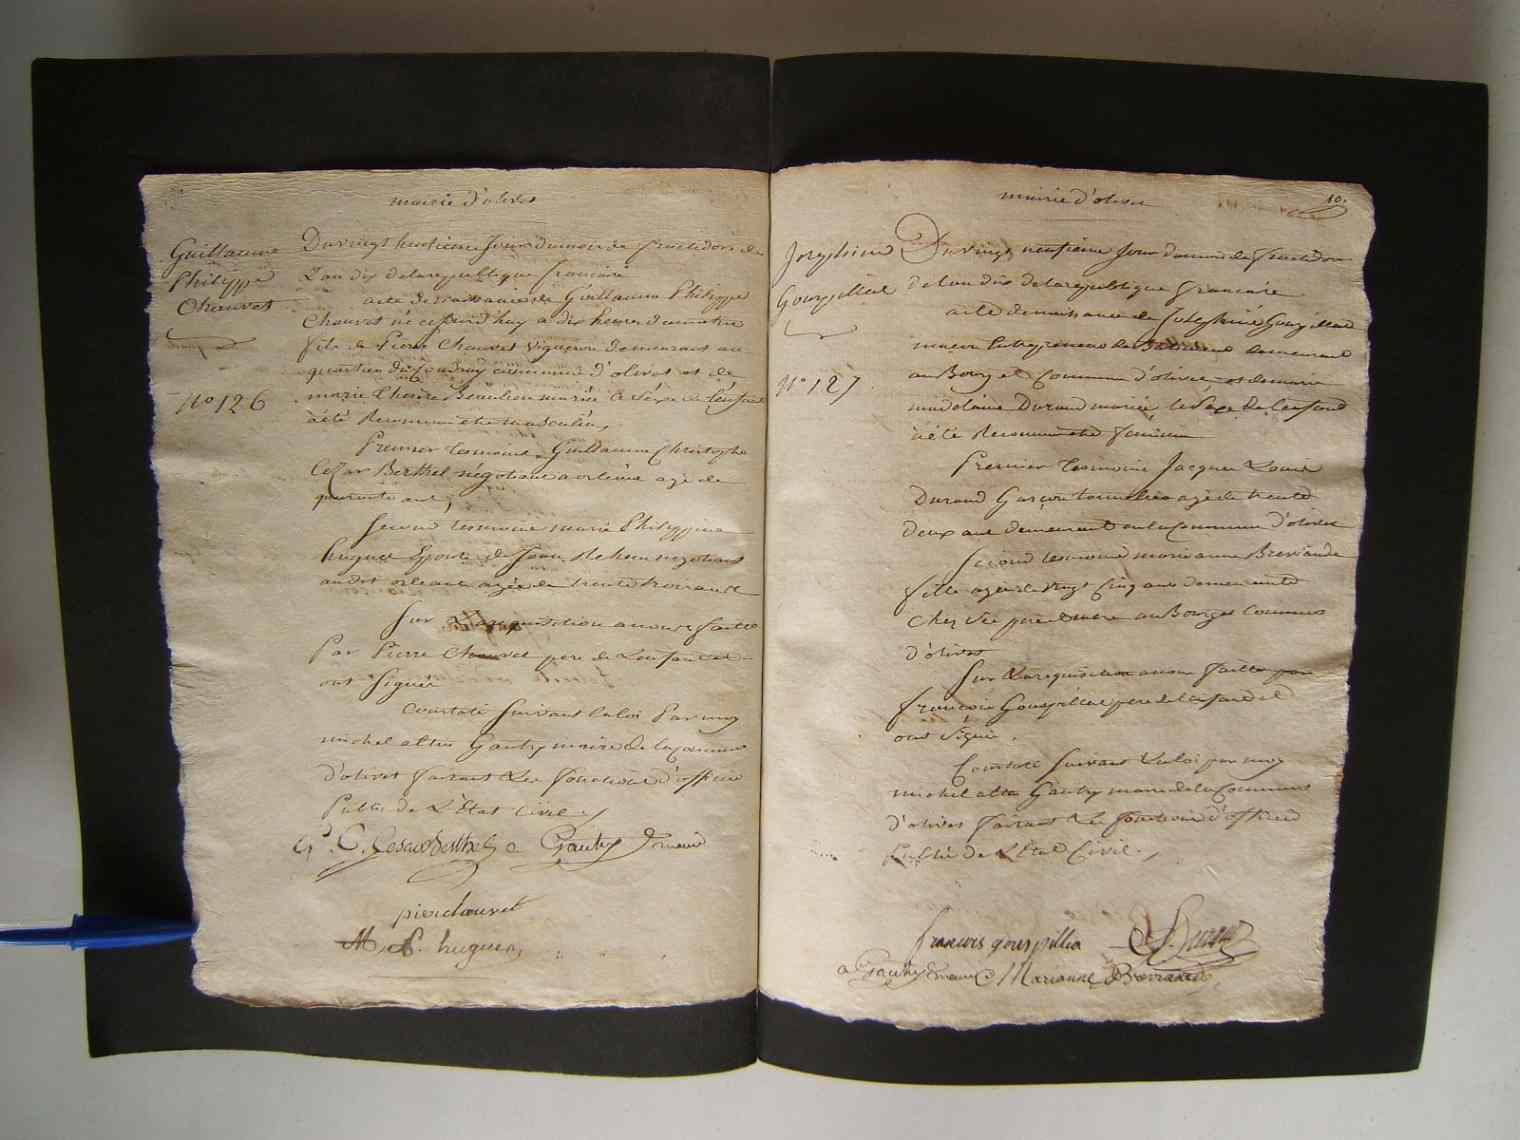 mairie d'olivet
Guillaume
Philippe
Chauvet
N° 126
Du vingt huitieme Jour du mois de fructidor de
L'an dix de la republique francaise
acte de naissance de Guillaume Philippe
Chauvet né ce jourd'huy a dix heures du matin
fils de Pierre Chauvet vigneron demeurant au
quartier du Coudray commune d'olivet et de
marie Therese Beaulieu mariés le sexe de l'enfant
a été Reconnu etre masculin,
Premier temoin Guillaume Christophe
Cezar Berthel négotiant a orléans agé de
quarante ans,
Second temoin marie Philippine
hugues Epouse de Jean negotiant
audit orleans agée de trente trois ans
Sur La requisition a nous faitte
Par Pierre Chauvet pere de L'enfant et
ont Signés
Constaté Suivant la loi Par moy
michel altin Gautry maire de la commune
d'olivet faisant Les fonctions d'officier
Public de L'Etat Civil,
G. C. Cesar Berthel Gautry maire
pier chauvet
M. P. hugues,
mairie d'olivet
10.
Josephine
Gouspillat
N° 127
Du vingt neufieme Jour du mois de fructidor
de l'an dix de la republique francaise
acte de naissance de Josephine Gouspillat
maçon Entrepreneur de Batiment demeurant
au Bourg et Commune d'olivet et de marie
madelaine Durand mariés le Sexe de l'enfant
a été Reconnu etre feminin
Premier temoin Jacques Louis
Durand Garçon tonnelier agé de trente
deux ans demeurant en la Commune d'olivet
Second temoin marianne
fille agée de vingt Cinq ans demeurante
Chez Ses pere et mere au Bourg et Commune
d'olivet
Sur La requisition a nous faitte par
francois Gouspillat pere de L'enfant et
ont Signé.
Constaté Suivant La loi par moy
michel altin Gautry maire de la Commune
d'olivet faisant Les fonctions d'officier
Public de L'Etat Civil,
francois gouspillia
Gautry maire Marianne